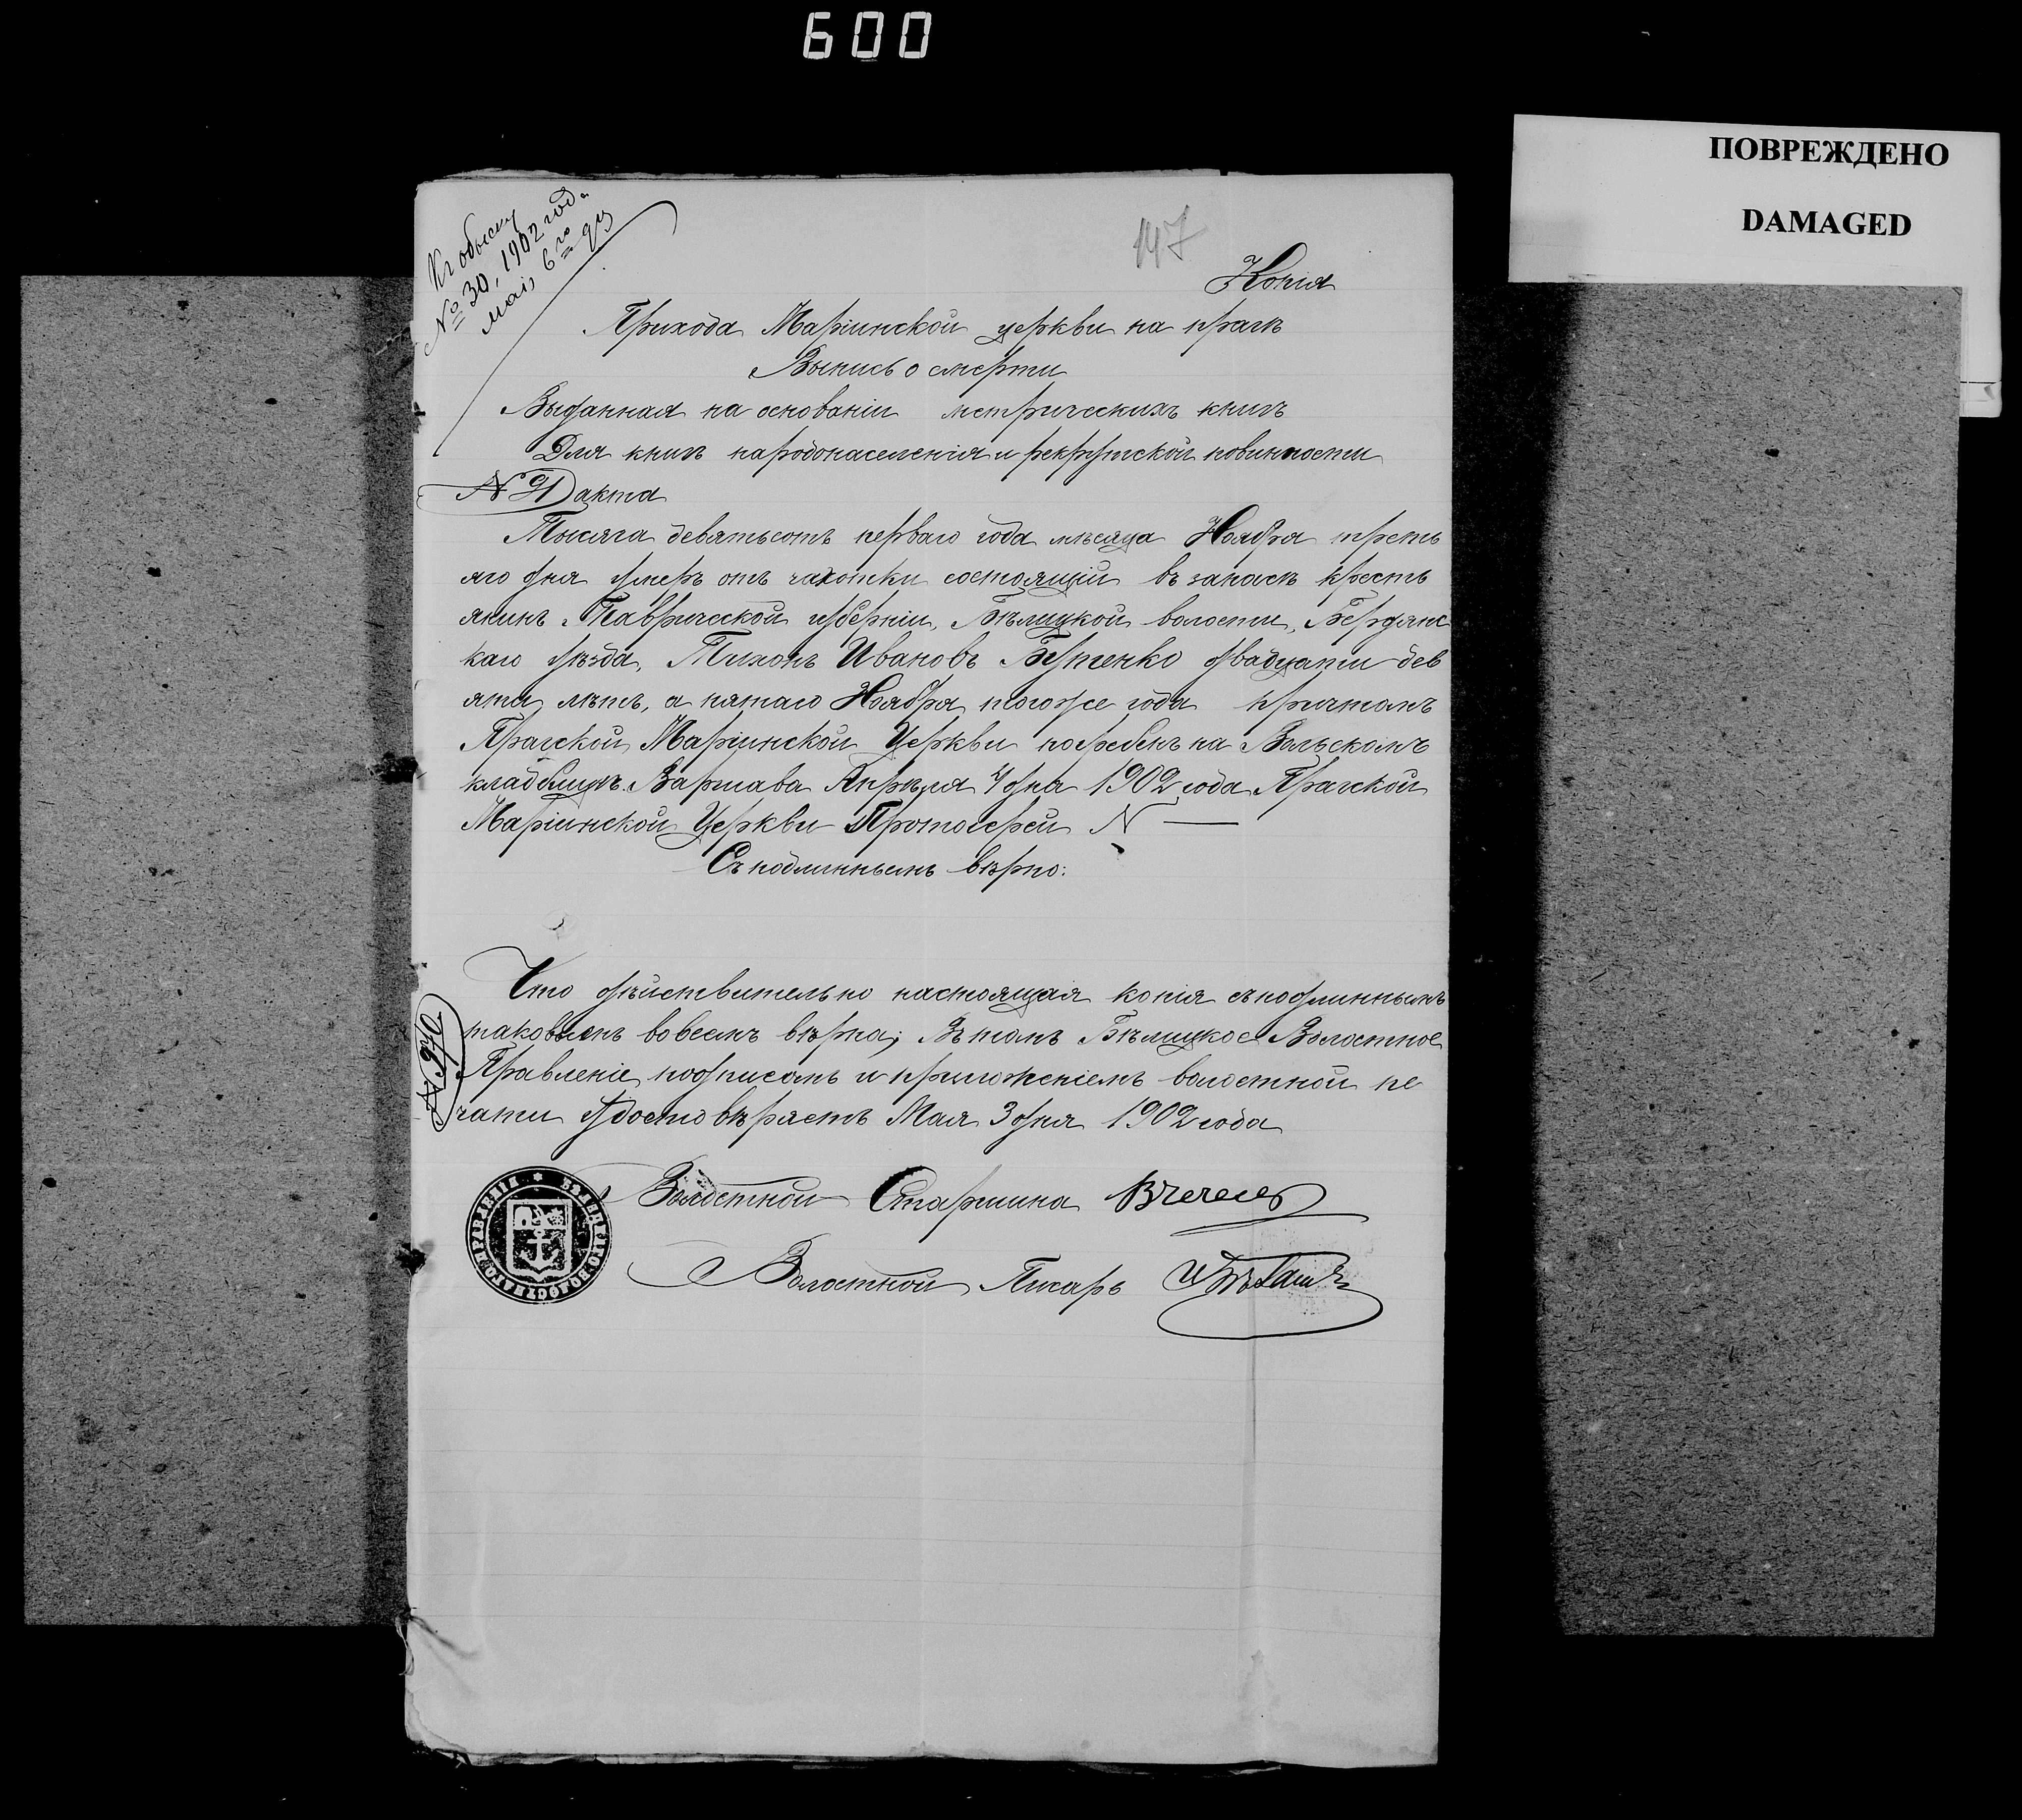 600
ПОВРЕЖДЕНО
DAMAGED
Къ обыску
№ 30, 1902 года
мая 6го дня
147
Копія
Прихода Маріинской церкви на прагѣ
Выпись о смерти
Выданная на основаніи метрическихъ книгъ
Для книгъ народонаселенія и рекрутской повинности
акта
Тысяча девятьсотъ перваго года мѣсяца Ноября треть
яго дня умеръ отъ чахотки состоящій въ запасѣ кресть
янинъ Таврической губерніи, Бѣлицкой волости, Бердянс
каго уѣзда, Тихонъ Ивановъ двадцати дев
яти лѣтъ, а пятаго Ноября того же года причтомъ
Прагской Маріинской Церкви погребенъ на Вольскомъ
кладбищѣ. Варшава Апрѣля 4 дня 1902 года Прагской
Маріинской Церкви Протоіерей N —
Съ подлиннымъ вѣрно:
Что дѣйствительно настоящая копія съ подлиннымъ
таковымъ во всемъ вѣрна; Въ томъ Бѣлицкое Волостное
Правленіе подписомъ и приложеніемъ волостной пе
чати удостовѣряетъ Мая 3 дня 1902 года
№ 970
Волостной Старшина
Волостной Писарь